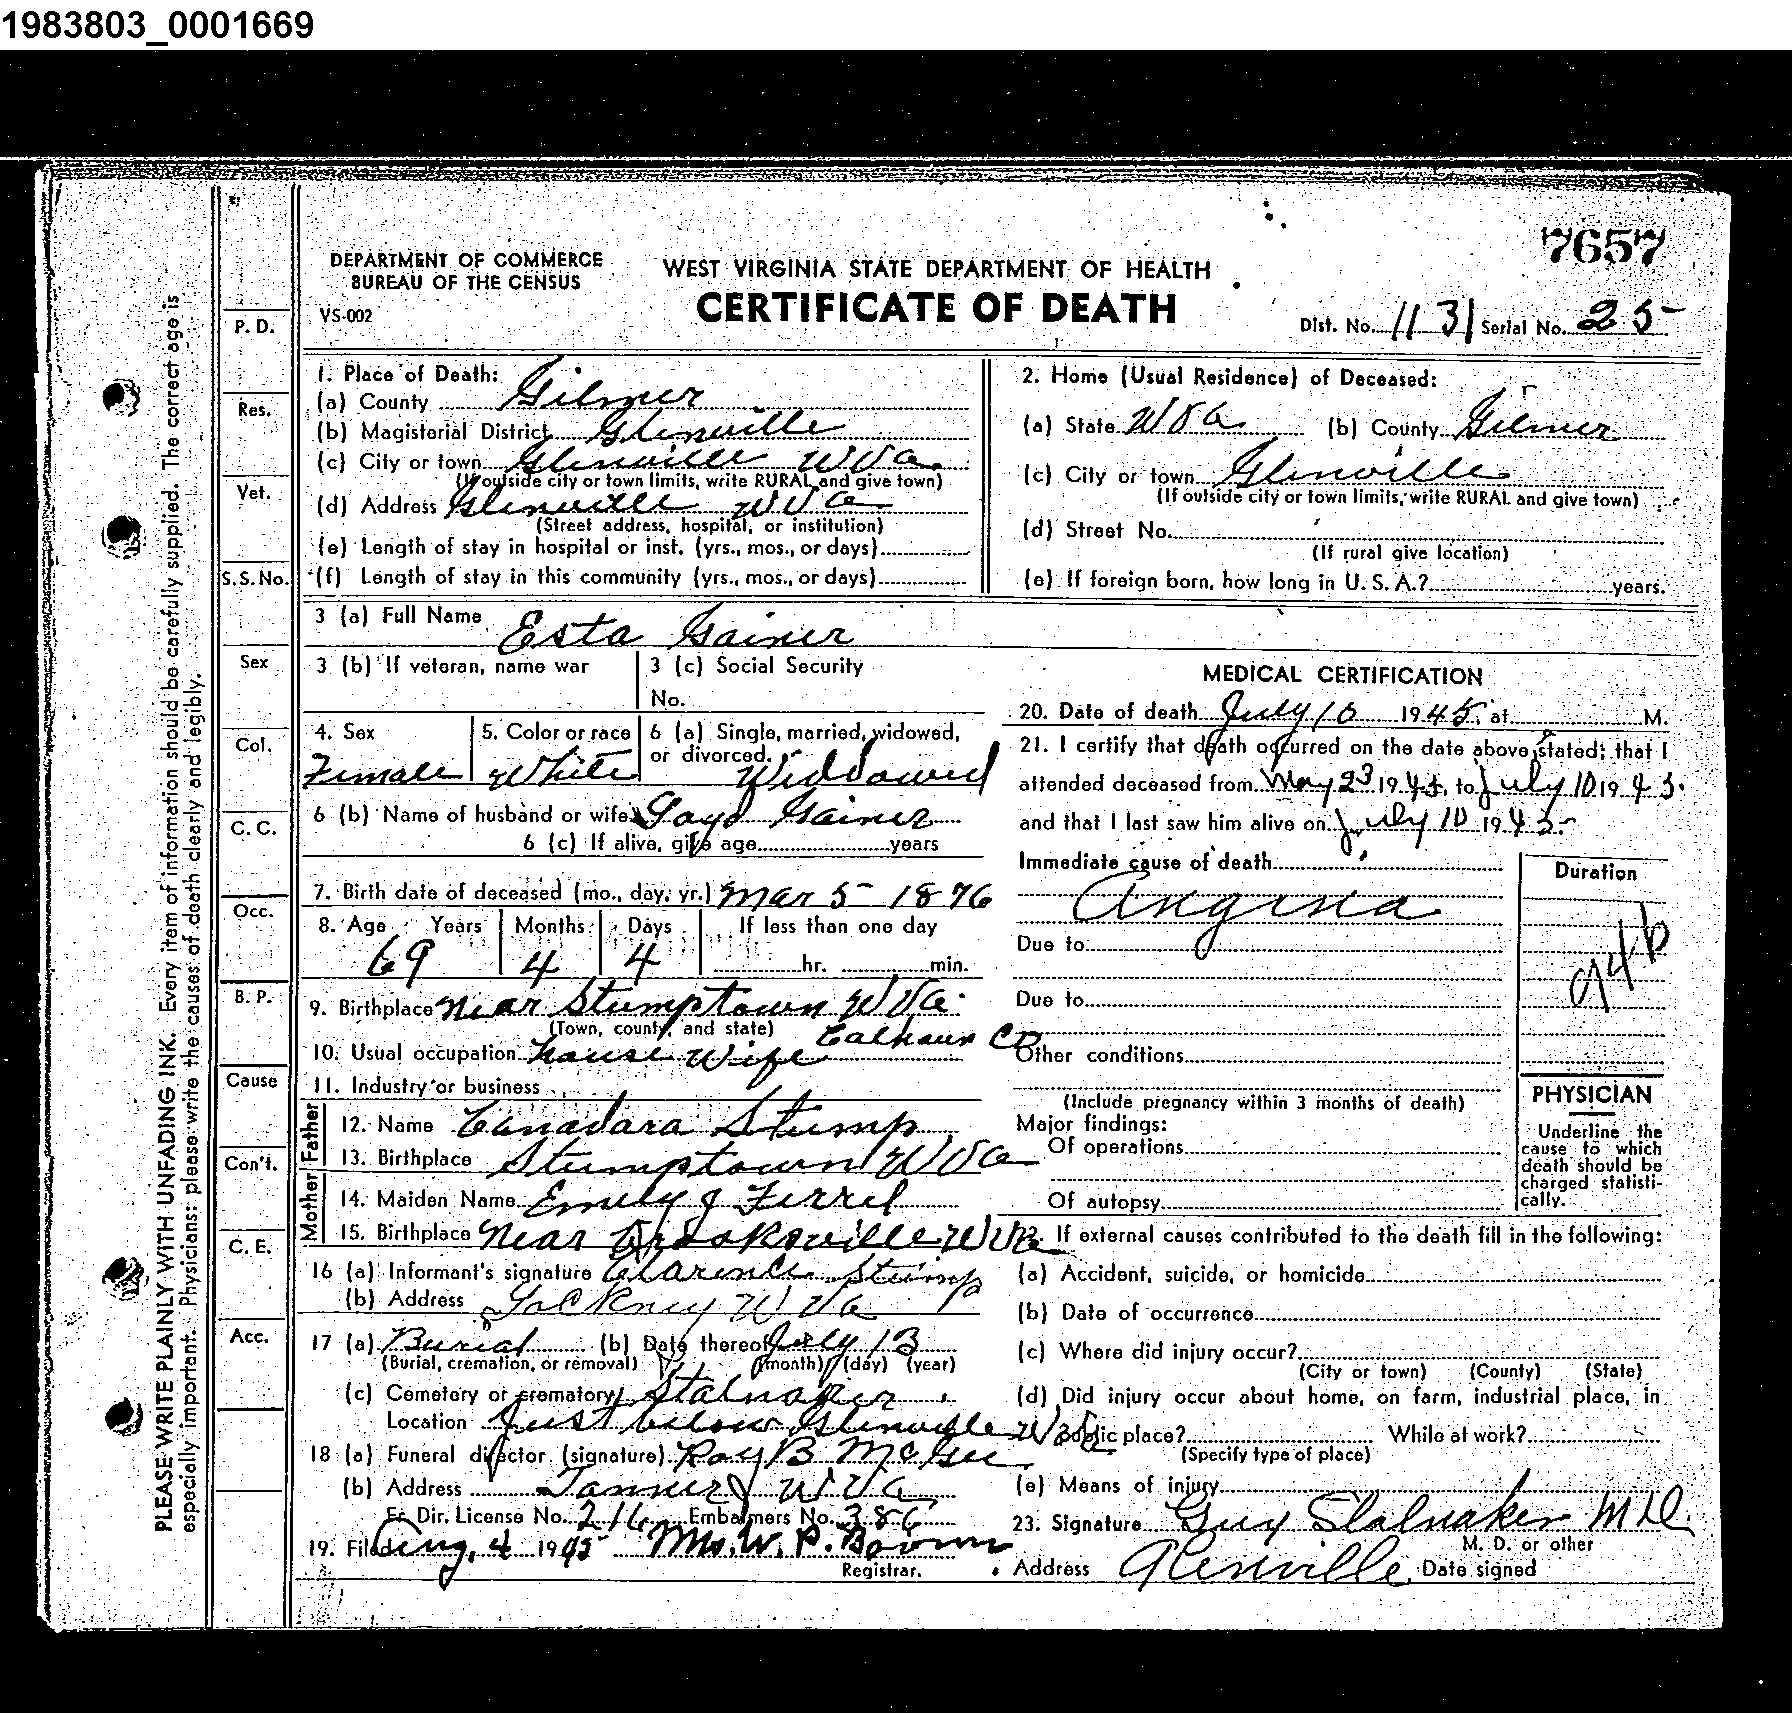 1983803_0001669
7657
DEPARTMENT OF COMMERCE
BUREAU OF THE CENSUS
VS-002
WEST VIRGINIA STATE DEPARTMENT OF HEALTH
CERTIFICATE OF DEATH
Dist. No. 1131 Serial No. 25
PLEASE WRITE PLAINLY WITH UNFADING INK. Every item of information should be carefully supplied. The correct age is
especially important. Physicians: please write the causes of death clearly and legibly.
P. D.
Res.
Vet.
S.S. No.
Sex
Col.
C. C.
Occ.
B. P.
Cause
Con't.
C. E.
Acc.
1. Place of Death:
(a) County Gilmer
(b) Magisterial District Glenville
(c) City or town Glenville W Va.
(If outside city or town limits, write RURAL and give town)
(d) Address Glenville W Va
(Street address, hospital, or institution)
(e) Length of stay in hospital or inst. (yrs., mos., or days)
(f) Length of stay in this community (yrs., mos., or days)
2. Home (Usual Residence) of Deceased:
(a) State W Va (b) County Gilmer
(c) City or town Glenville
(If outside city or town limits, write RURAL and give town)
(d) Street No.
(If rural give location)
(e) If foreign born, how long in U. S. A.? years.
3 (a) Full Name Esta Gainer
3 (b) If veteran, name war
3 (c) Social Security
No.
4. Sex
Female
5. Color or race
White
6 (a) Single, married, widowed,
or divorced.
Widdowed
6 (b) Name of husband or wife Gayd Gainer
6 (c) If alive, give age years
7. Birth date of deceased (mo., day, yr.) Mar 5 1876
8. Age Years Months Days If less than one day
69 4 4 hr. min.
9. Birthplace Near Stumptown W Va.
(Town, county, and state) Calhoun Co
10. Usual occupation house wife
11. Industry or business
Father
12. Name Canadara Stump
13. Birthplace Stumptown W Va
Mother
14. Maiden Name Emily J Ferrel
15. Birthplace Near Brooksville W Va
16 (a) Informant's signature Clarence Stump
(b) Address Lockney W Va
17 (a) Burial (b) Date thereof July 13
(Burial, cremation, or removal) (month) (day) (year)
(c) Cemetery or crematory Stalnaker
Location Just below Glenville W Va
18 (a) Funeral director (signature) Ray B McGee
(b) Address Tanner W Va
Fr. Dir. License No. 216 Embalmers No. 386
19. Filed Aug, 4 1945 Mrs. W. P. Brown
Registrar.
MEDICAL CERTIFICATION
20. Date of death July 10 1945 at M.
21. I certify that death occurred on the date above stated; that I
attended deceased from May 23 1945, to July 10 1945.
and that I last saw him alive on July 10 1945.
Immediate cause of death
Angina
Duration
94b
Due to
Due to
Other conditions
(Include pregnancy within 3 months of death)
Major findings:
Of operations
Of autopsy
PHYSICIAN
Underline the
cause to which
death should be
charged statisti-
cally.
If external causes contributed to the death fill in the following:
(a) Accident, suicide, or homicide
(b) Date of occurrence
(c) Where did injury occur?
(City or town) (County) (State)
(d) Did injury occur about home, on farm, industrial place, in
public place? While at work?
(Specify type of place)
(e) Means of injury
23. Signature Guy Stalnaker MD.
M. D. or other
Address Glenville Date signed